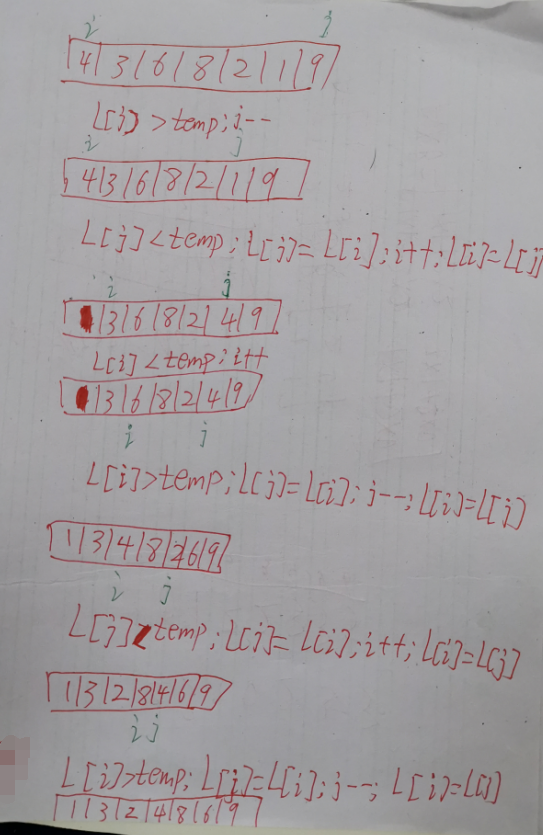 i j
|4|3|6|8|2|1|9|
L[j]>temp;j--
i j
4|3|6|8|2|1|9
L[j]<temp;L[j]=L[i];i++;L[i]=L[j]
i j
|3|6|8|2|4|9
L[i]<temp;i++
|3|6|8|2|4|9
i j
L[i]>temp;L[j]=L[i];j--;L[i]=L[j]
1|3|4|8|2|6|9
i j
L[j]<temp;L[j]=L[i];i++;L[i]=L[j]
1|3|2|8|4|6|9
i j
L[i]>temp;L[j]=L[i];j--;L[i]=L[j]
1|3|2|4|8|6|9